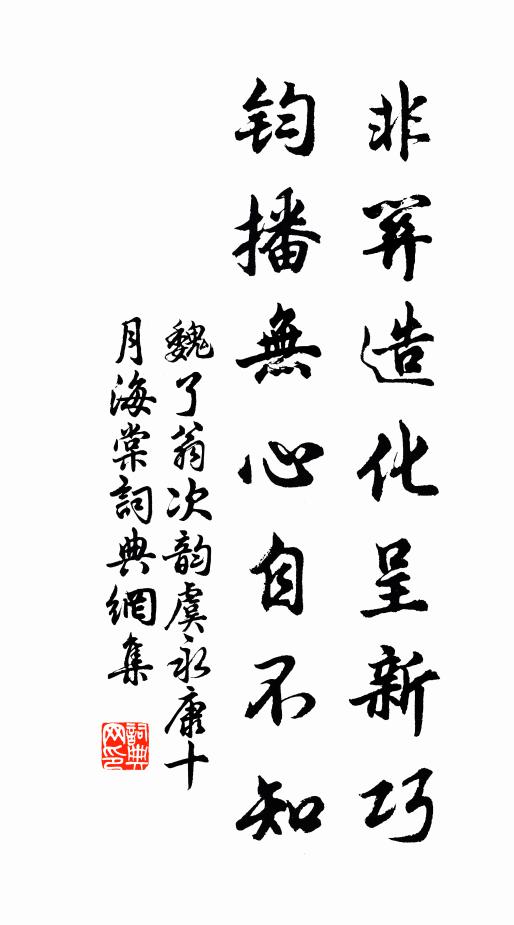 非關造化呈新巧
钧播無心自不知
魏了翁次韵虞永康十
月海棠詞典網集
詞典
网印